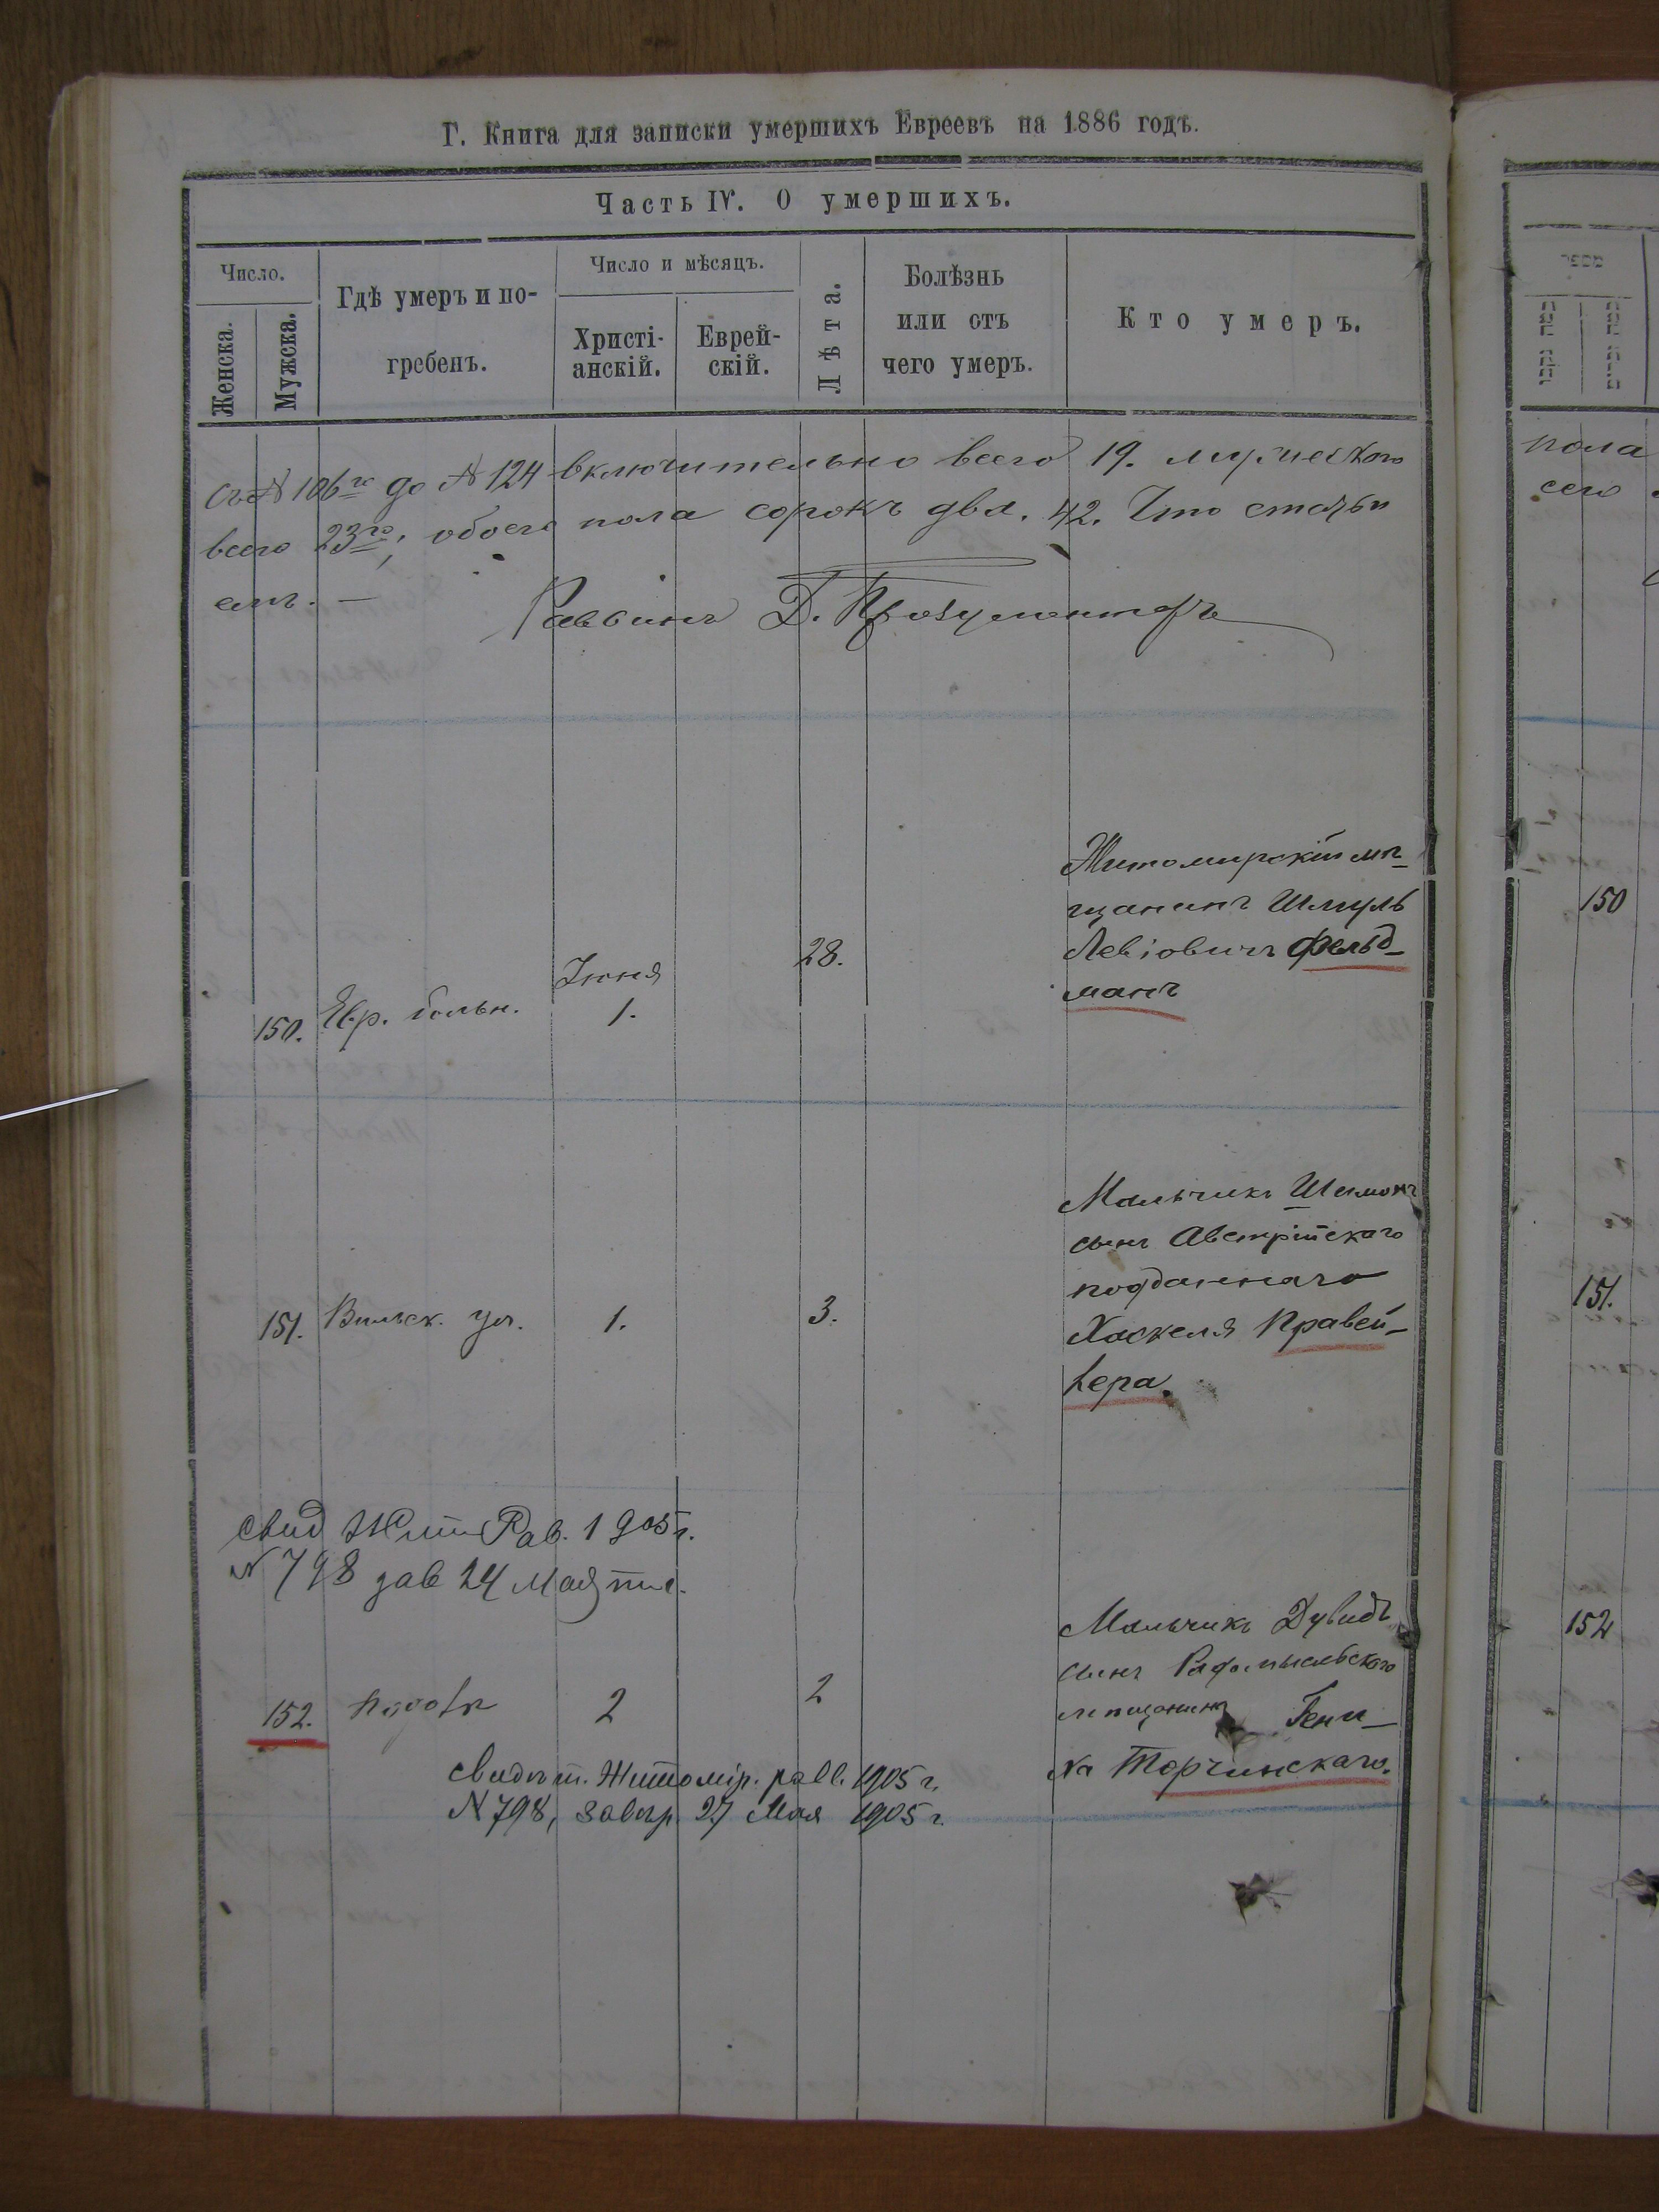 Г. Книга для записки умершихъ Евреевъ на 1886 годъ.
Часть IV. О умершихъ.
Число.
Женска.
Мужска.
Гдѣ умеръ и по-
гребенъ.
Число и мѣсяцъ.
Христі-
анскій.
Еврей-
скій.
Лѣта.
Болѣзнь
или отъ
чего умеръ.
Кто умеръ.
съ № 106го до № 124 включительно всего 19. мужескаго
всего 23го; обоего пола сорокъ два. 42. Что
Раввинъ
150.
Евр. больн.
Іюня
1.
28.
Житомирскій мѣ-
щанинъ Шмуль
Левіовичъ Фельд-
манъ
151.
Вильск. ул.
1.
3.
Мальчикъ Шимонъ
сынъ Австрійскаго
подданнаго
Хаскеля Правей-
лера.
Свид Жит Рав. 1905 г.
№ 798 зав 24 Мая
152.
2
2
Мальчикъ Дувидъ
сынъ Радомысльскаго
мѣщанина Гени-
ха Торчинскаго.
Свидѣт. Житомір. равв. 1905 г.
№ 798, завѣр. 27 Мая 1905 г.
пола
сего
150
151.
152